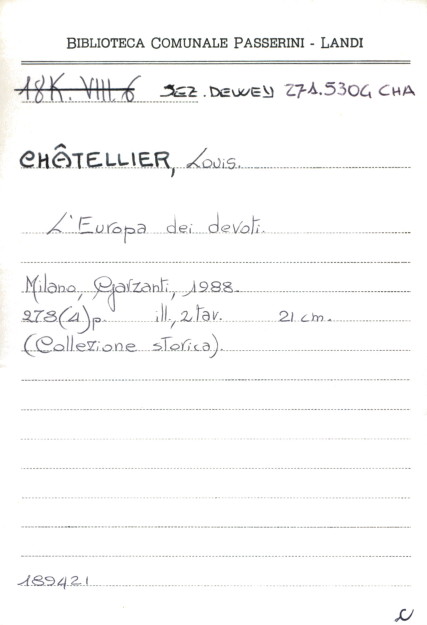 BIBLIOTECA COMUNALE PASSERINI - LANDI
18K. VIII. 6 SEZ. DEWEY 271.5304 CHA
CHÂTELLIER, Louis.
L'Europa dei devoti.
Milano, Garzanti, 1988.
278(4)p. ill., 2 tav. 21 cm.
(Collezione storica).
189421
C